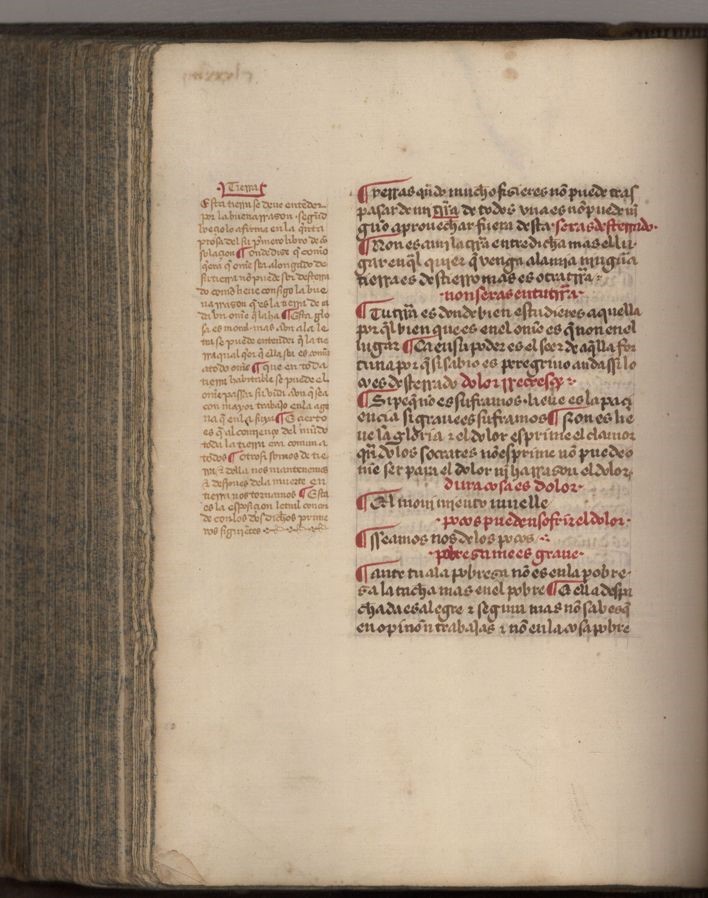 Tierra
Esta tierra se deve entender
por la buena rrason segũd
boeçio lo afirma en la
prosa del su pʳmero libro de cõ
solaçion ¶ onde dise q̃ como
q̃era q̃ ome sea alongado de
su tierra nõ puede ser desterra
do como lieve consigo la bue
na rrason q̃ es la tierra
¶ Esta glo
sa es moral mas avn a la le
tra se puede entender q̃ la tie
rra qual q̃er q̃ ella sea es comũ
a todo ome ¶ que en toda
tierra habitable se puede el
ome passar su vida avn q̃ sea
con mayor trabajo en la age
na q̃ en la suya ¶ E çierto
es q̃ al comienço del mũdo
toda la tierra era comun a
todos ¶ otrosi somos de tie
rra ⁊ della nos mantenemos
⁊ despues dela muerte en
tierra nos tornamos ¶ Esta
es la esposiçion
de con los dos dichos prime
ros siguientes
¶ rerras qñdo mucho fisieres nõ puede tras
pasar de mi trr̃a de todos vna es nõ puede ni
guo aprouechar fuera desta seras desterrado
¶ Non es a mi la trr̃a entredicha mas el lu
gar en q̃l quier q̃ venga a la mia ningũa
tierra es destierro mas es otra trr̃a
non seras en tu trr̃a
¶ Tu trr̃a es donde bien estudieres aquella
por q̃l bien que es enel ome es q̃ non enel
lugar ¶ Ca en su poder es el seer de aq̃lla for
tuna por q̃ si sabio es peregrino anda si lo
co es desterrado dolor rrecresçe
¶ Si peq̃no es suframos lieue es la paçi
ençia si graue es suframos ¶ Non es lie
ue la gloria ⁊ el dolor esprime el clamor
qñdo los socrates nõ esprime nõ puede o
me ser para el dolor nj ha rrason el dolor
dura cosa es dolor
¶ El mouimiento
pocos pueden sofrir el dolor
¶ Seamos nos de los pocos
pobresa me es graue
¶ ante tu a la pobresa nõ es en la pobre
sa la tacha mas enel pobre ¶ E ella despa
chada es alegre ⁊ segura mas nõ sabes q̃
en opinõn trabajas ⁊ nõ en la cosa pobre